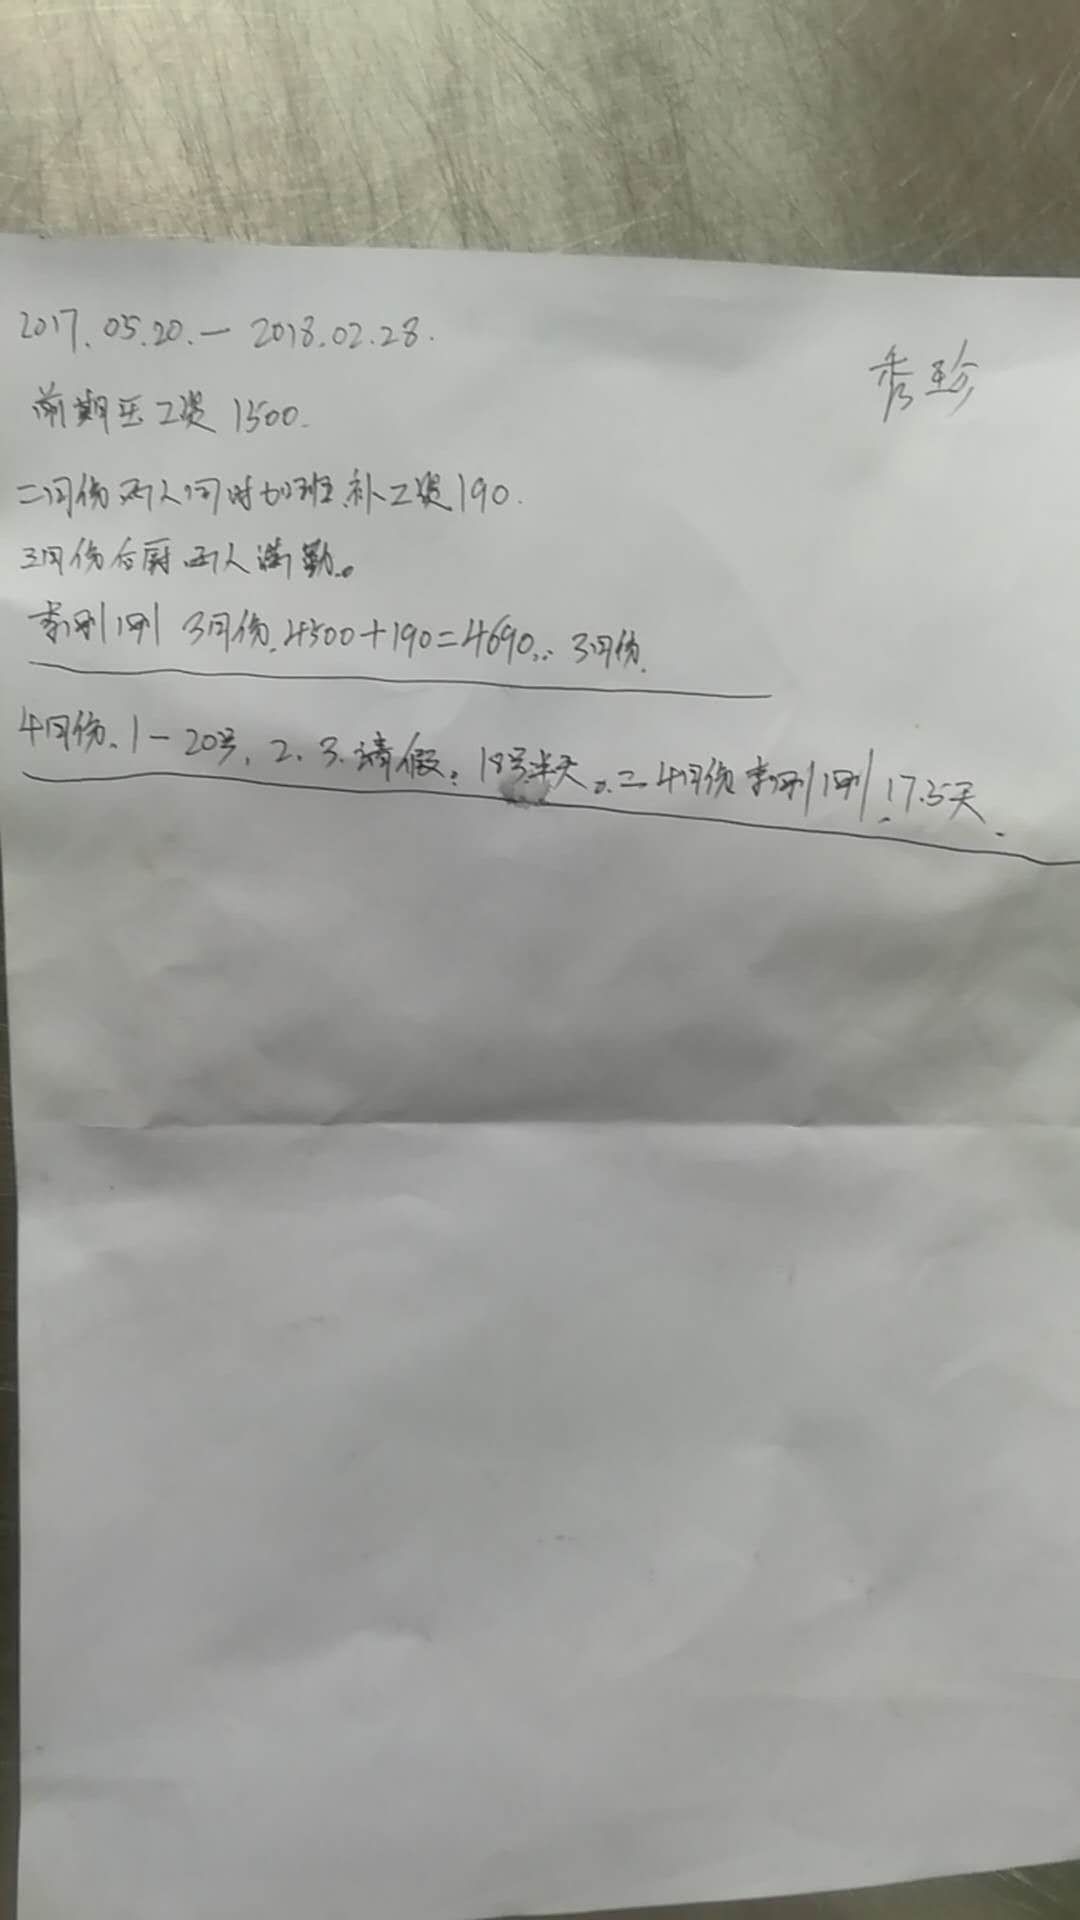 2017.05.20.一2018.02.28.
秀珍
前期压工资1500.
二月份两人同时加班,补工资190.
3月份后厨两人满勤。
李刚刚 3月份,4500+190=4690,∴3月份.
4月份、1-20号,2、3、请假,18号半天。二4月份李刚刚,17.5天.